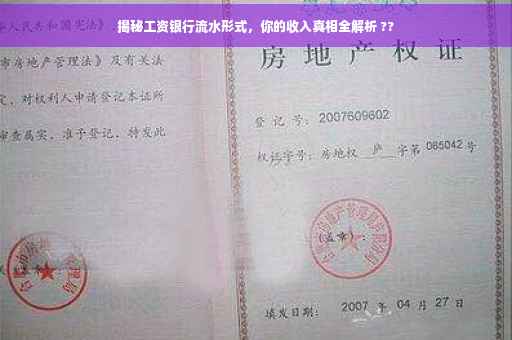 揭秘工资银行流水形式，你的收入真相全解析 ??
人民共和国宪法》
市房地产管理法》及有关法
定，对权利人申请登记本证所
审查属实，准予登记，特发此
房地产权证
登记号：2007609602
权证字号：房地权 庐 字第 065042 号
(盖章)：
填发日期： 2007 年 04 月 27 日